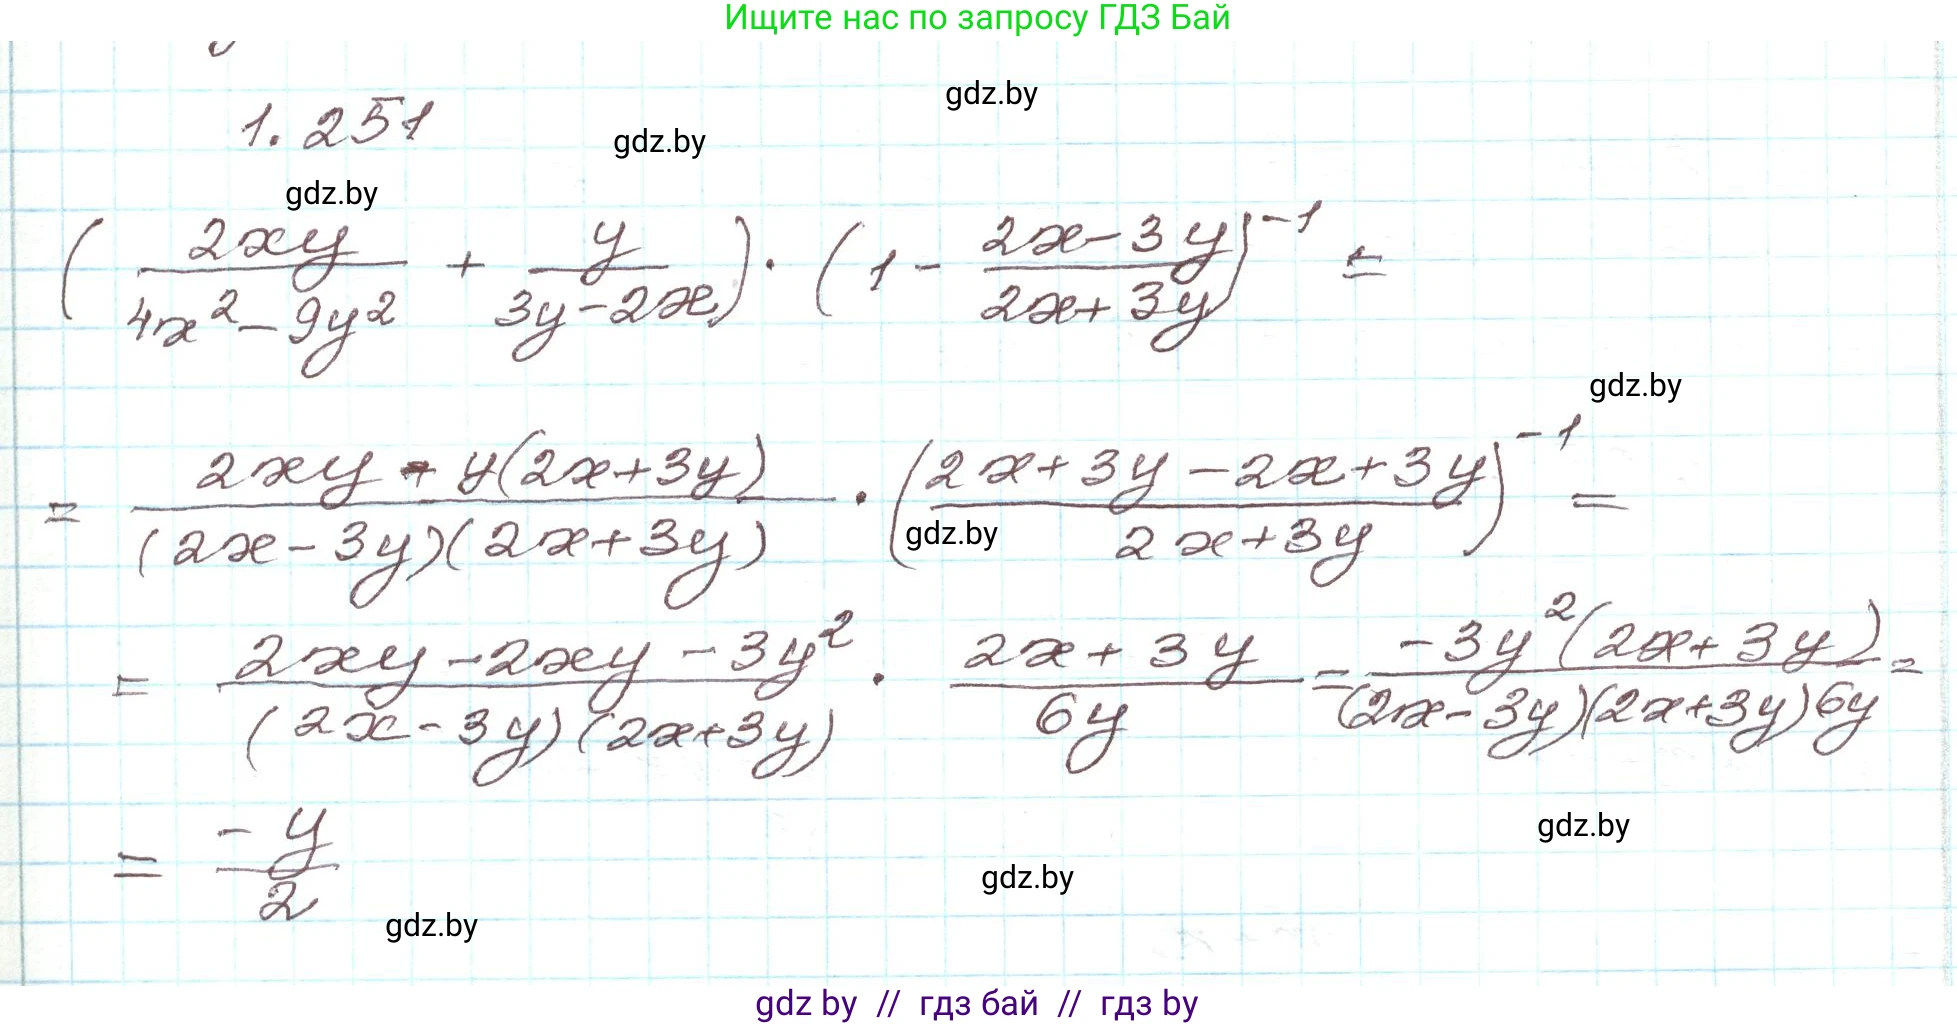 Ищите нас по запросу ГДЗ Бай
gdz.by
1.251
gdz.by
gdz.by
(2xy/(4x² - 9y²) + y/(3y - 2x)) · (1 - (2x - 3y)/(2x + 3y))⁻¹ =
gdz.by
= (2xy - y(2x + 3y))/((2x - 3y)(2x + 3y)) · ((2x + 3y - 2x + 3y)/(2x + 3y))⁻¹ =
gdz.by
= (2xy - 2xy - 3y²)/((2x - 3y)(2x + 3y)) · (2x + 3y)/(6y) = (-3y²(2x + 3y))/((2x - 3y)(2x + 3y)6y) =
gdz.by
= -y/2
gdz.by
gdz.by
gdz by // гдз бай // гдз by